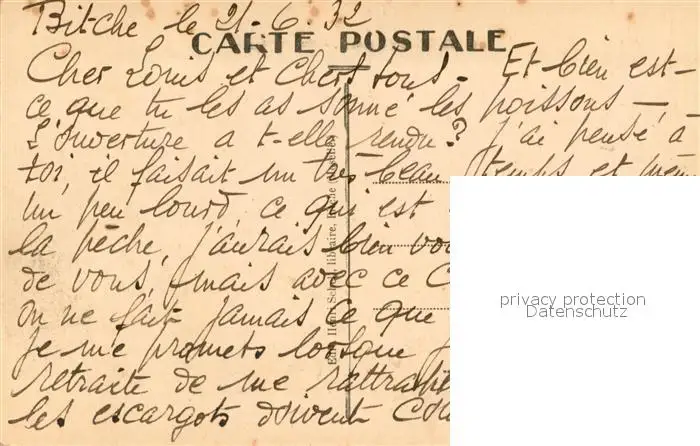 Bitche le 21-6.32
CARTE POSTALE
Cher Louis et Chers tous - Et bien est-
ce que tu les as sonné les poissons -
L'ouverture a t-elle rendu? J'ai pensé à
toi, il faisait un très beau temps et même
un peu lourd, ce qui est
la pêche, j'aurais bien
de vous, mais avec ce
on ne fait jamais ce que
Je me promets lorsque
retraite de me
les escargots doivent
Edit. Henri libraire, Bitche (Moselle)
privacy protection
Datenschutz